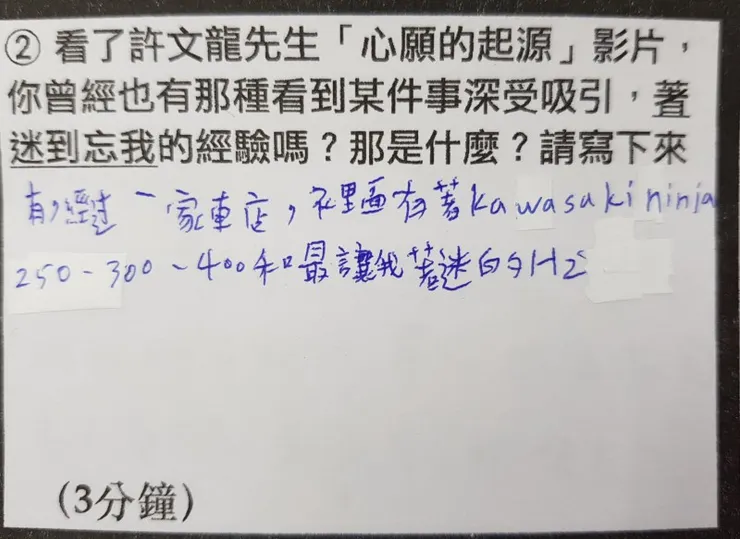 ② 看了許文龍先生「心願的起源」影片，
你曾經也有那種看到某件事深受吸引，著
迷到忘我的經驗嗎？那是什麼？請寫下來
有，經過一家車店，裡面有著kawasaki ninja
250-300、400和最讓我著迷的H2
(3分鐘)